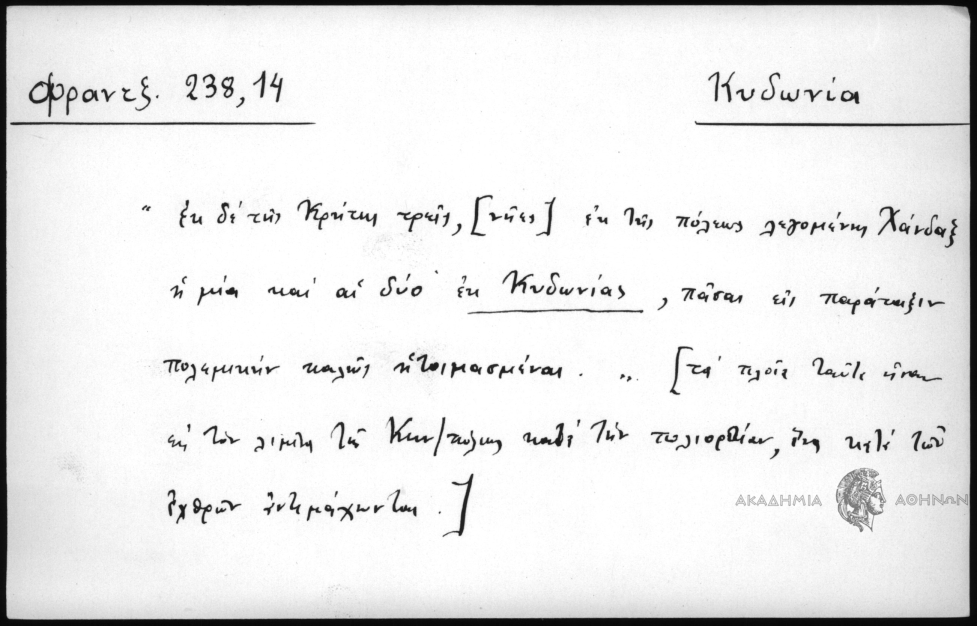 Φραντζ. 238, 14
Κυδωνία
" ἐκ δέ τῆς Κρήτης τρεῖς, [νῆες] ἐκ τῆς πόλεως λεγομένης Χάνδαξ
ἡ μία καί αἱ δύο ἐκ Κυδωνίας, πᾶσαι εἰς παράταξιν
πολεμικήν καλῶς ἡτοιμασμέναι. „ [τά πλοῖα ταῦτα ἦσαν
εἰς τόν λιμένα τῆς Κων/πόλεως κατά τήν πολιορκίαν, κατά τῶν
ἐχθρῶν ἀντιμάχωνται.]
ΑΚΑΔΗΜΙΑ ΑΘΗΝΩΝ